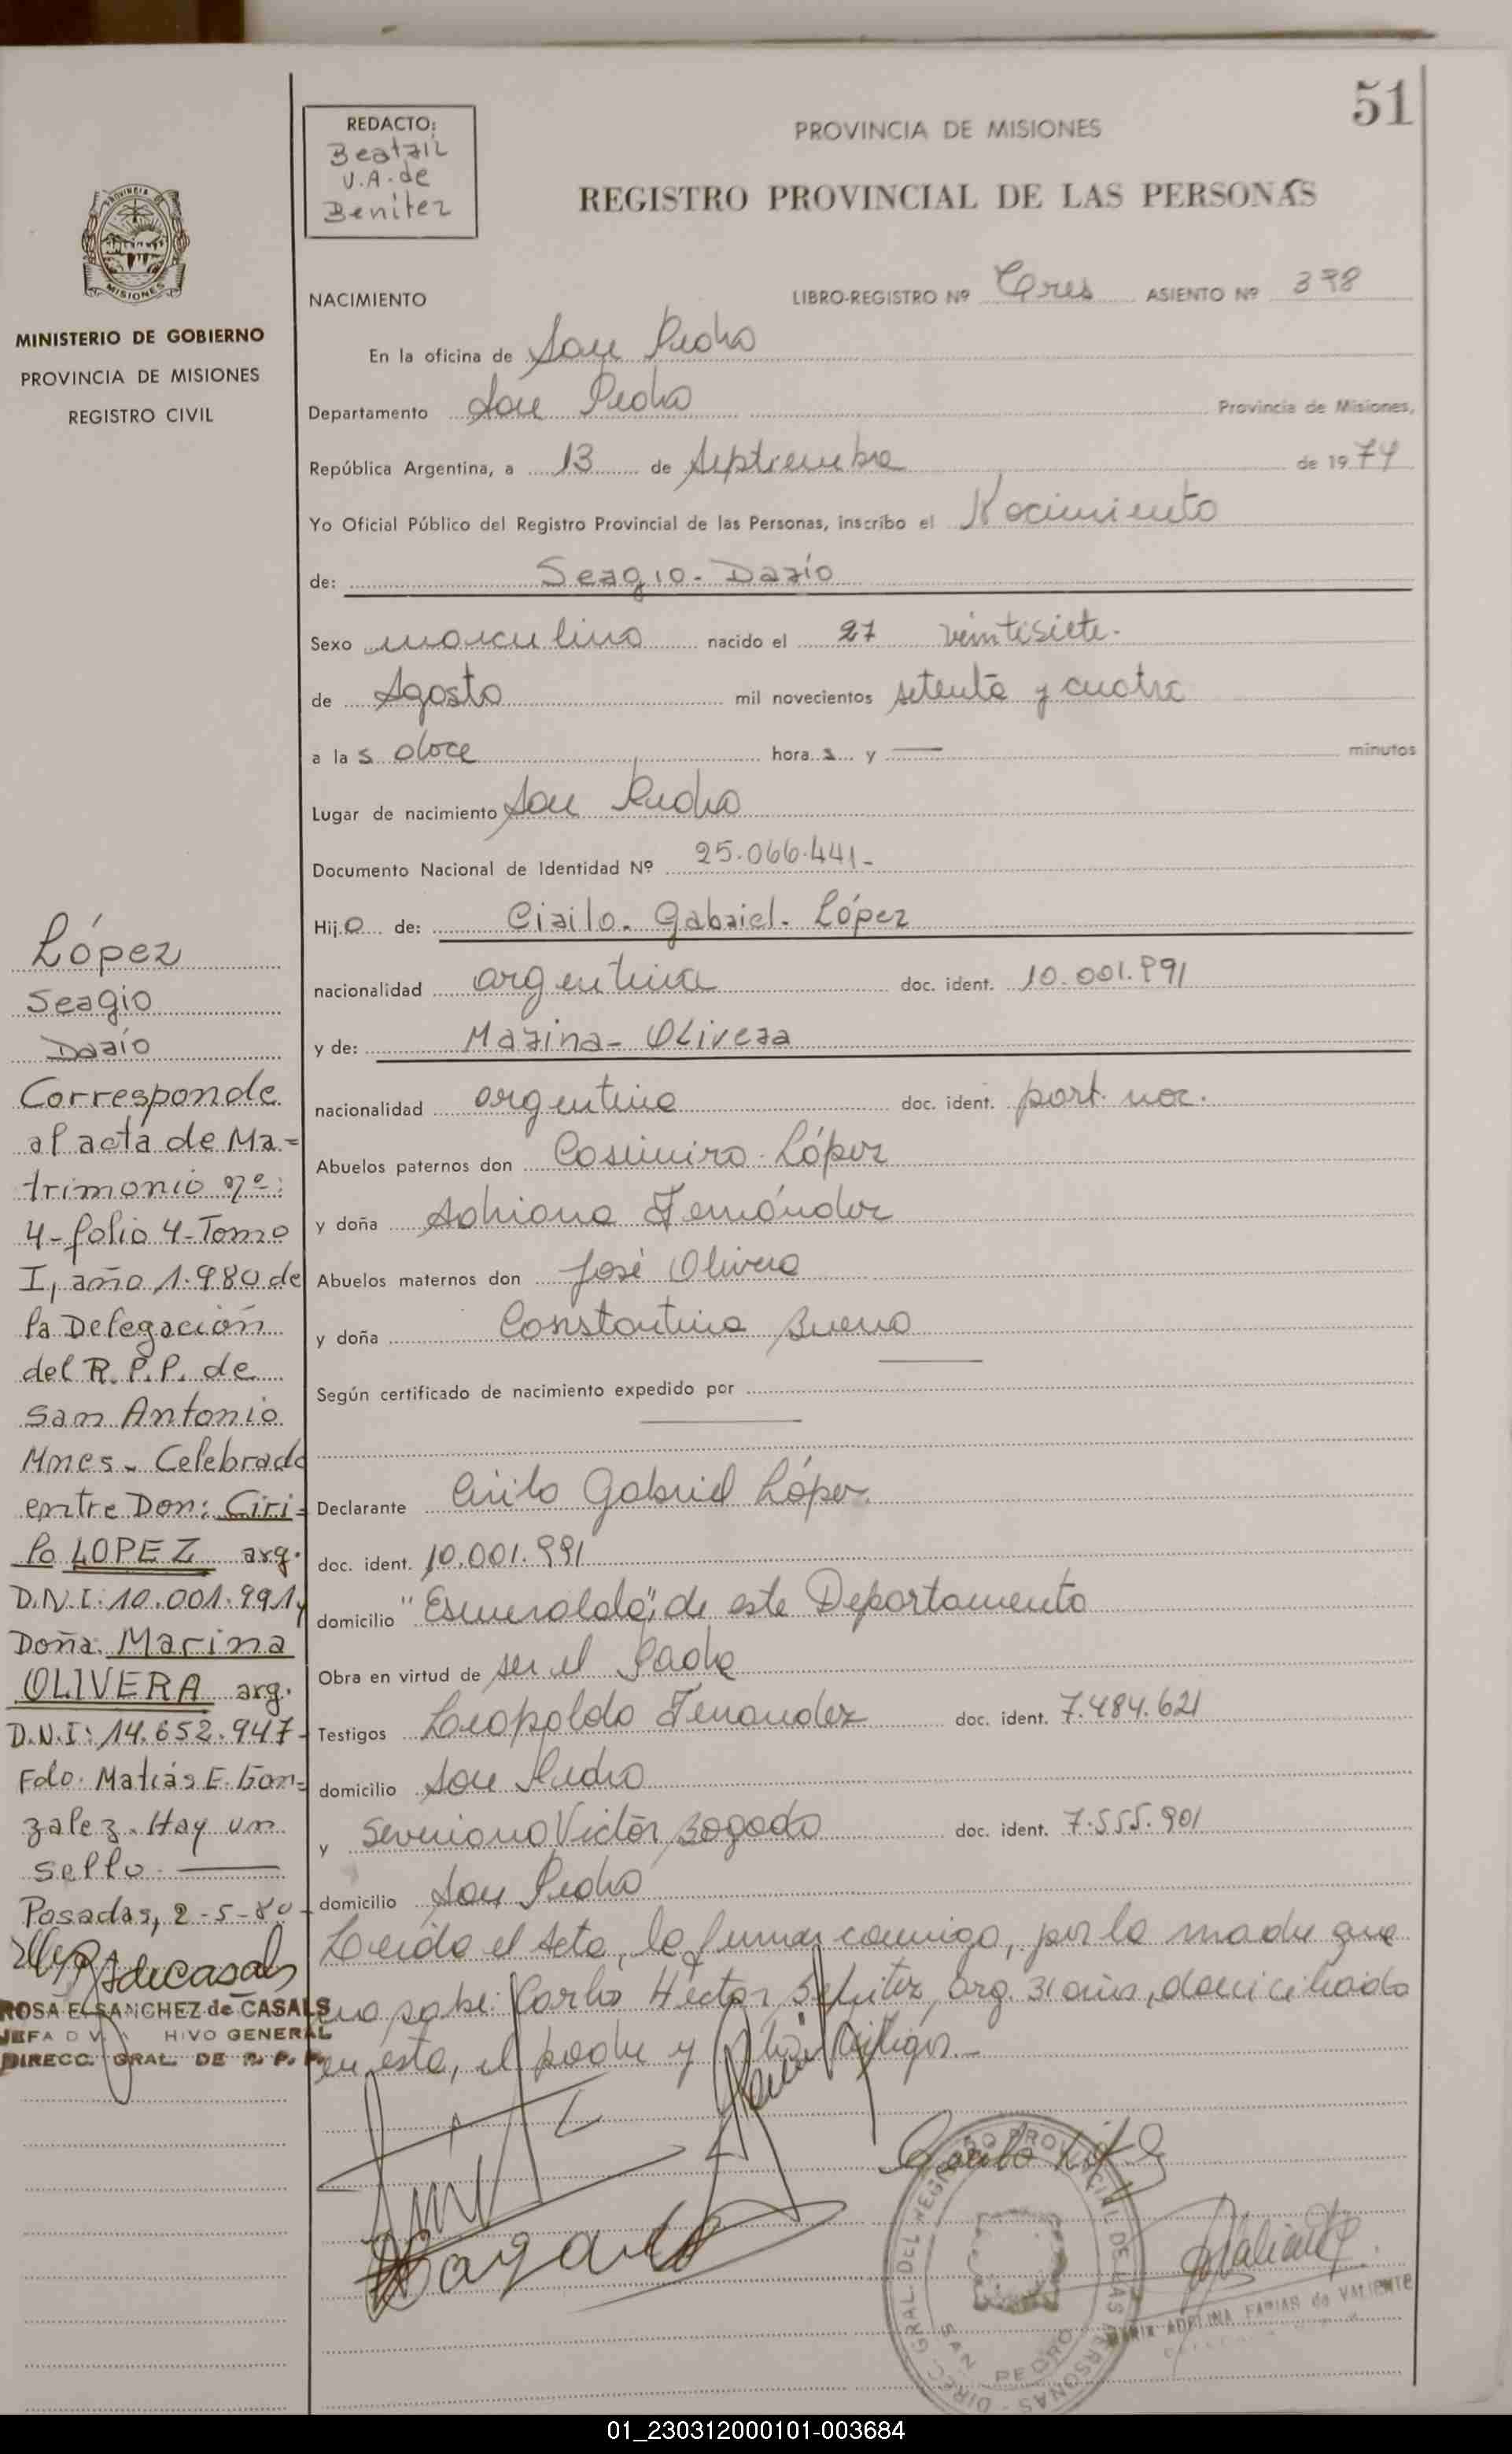 51
REDACTO:
Beatriz
V.A. de
Benitez
PROVINCIA DE MISIONES
REGISTRO PROVINCIAL DE LAS PERSONAS
NACIMIENTO
LIBRO-REGISTRO Nº Tres ASIENTO Nº 398
En la oficina de San Pedro
Departamento San Pedro Provincia de Misiones,
República Argentina, a 13 de Septiembre de 1974
Yo Oficial Público del Registro Provincial de las Personas, inscribo el Nacimiento
de: Sergio - Darío
Sexo masculino nacido el 27 veintisiete.
de Agosto mil novecientos setenta y cuatro
a las doce horas y — minutos
Lugar de nacimiento San Pedro
Documento Nacional de Identidad Nº 25.066.441-
Hijo de: Cirilo - Gabriel - López
nacionalidad argentina doc. ident. 10.001.991
y de: Marina - Olivera
nacionalidad argentina doc. ident. part. nac.
Abuelos paternos don Casimiro López
y doña Adriana Fernández
Abuelos maternos don José Olivera
y doña Constantina Bueno
Según certificado de nacimiento expedido por
Declarante Cirilo Gabriel López
doc. ident. 10.001.991
domicilio "Esmeralda", de este Departamento
Obra en virtud de ser el Padre
Testigos Leopoldo Fernandez doc. ident. 7.484.621
domicilio San Pedro
y Severiano Victor Bogado doc. ident. 7.555.901
domicilio San Pedro
Leída el Acta, la firman conmigo, por la madre que
no sabe: Carlos Héctor arg. 31 años, domiciliado
en ésta, el padre y los testigos.-
MINISTERIO DE GOBIERNO
PROVINCIA DE MISIONES
REGISTRO CIVIL
López
Sergio
Darío
Corresponde
al acta de Ma=
trimonio nº:
4-folio 4-Tomo
I, año 1.980 de
la Delegación
del R.P.P. de
San Antonio
Mnes - Celebrado
entre Don: Ciri=
lo LOPEZ arg.
D.N.I: 10.001.991 y
Doña: Marina
OLIVERA arg.
D.N.I: 14.652.947-
Fdo. Matías E. Gon=
zalez. Hay un
sello. —
Posadas, 2-5-80-
ROSA E. SANCHEZ de CASALS
JEFA DIV. HIVO GENERAL
DIRECC. GRAL. DE R. P. P.
Bogado
DIREC. GRAL. DEL REGISTRO PROVINCIAL DE LAS PERSONAS
SAN PEDRO
MARIA ADELINA FARIAS de VALIENTE
01_230312000101-003684